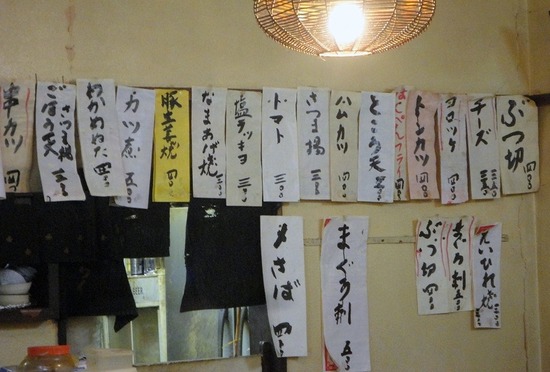 ぶつ切 四〇〇
チーズ 三五〇
コロッケ 四〇〇
トンカツ 四〇〇
はんぺんフライ 四〇〇
ハムカツ 四〇〇
さつま揚 三〇〇
トマト 三〇〇
塩ラッキョ 三〇〇
なまあげ焼 三〇〇
豚生姜焼 四〇〇
カツ煮 五〇〇
わかめぬた 四〇〇
さつま揚
ごぼう天 三〇〇
串カツ 四〇〇
えいひれ焼 五〇〇
まぐろ刺 五〇〇
ぶつ切 四〇〇
まぐろ刺 五〇〇
〆さば 四〇〇